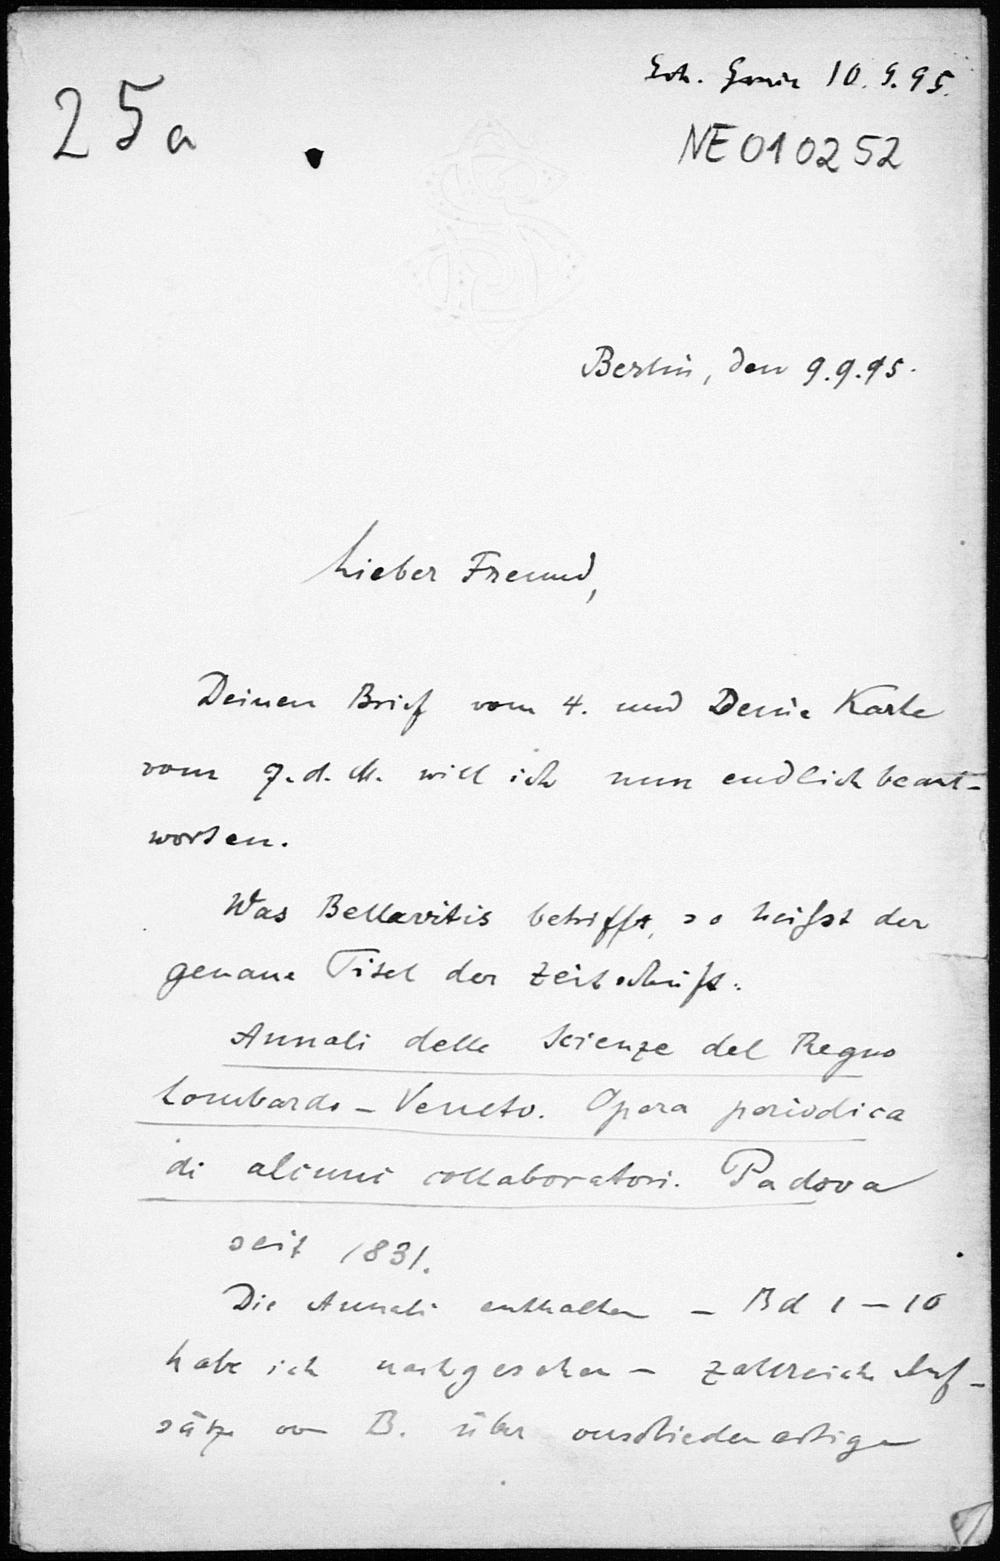 25a
10.9.95.
NE010252
Berlin, den 9.9.95.
Lieber Freund,
Deinen Brief vom 4. und Deine Karte
vom 7. d. M. will ich nun endlich beant-
worten.
Was Bellavitis betrifft, so heißt der
genaue Titel der Zeitschrift:
Annali delle Scienze del Regno
Lombardo-Veneto. Opera periodica
di alcuni collaboratori. Padova
seit 1831.
Die Annali enthalten – Bd 1–10
habe ich nachgesehen – zahlreiche Auf-
sätze von B. über verschiedenartige